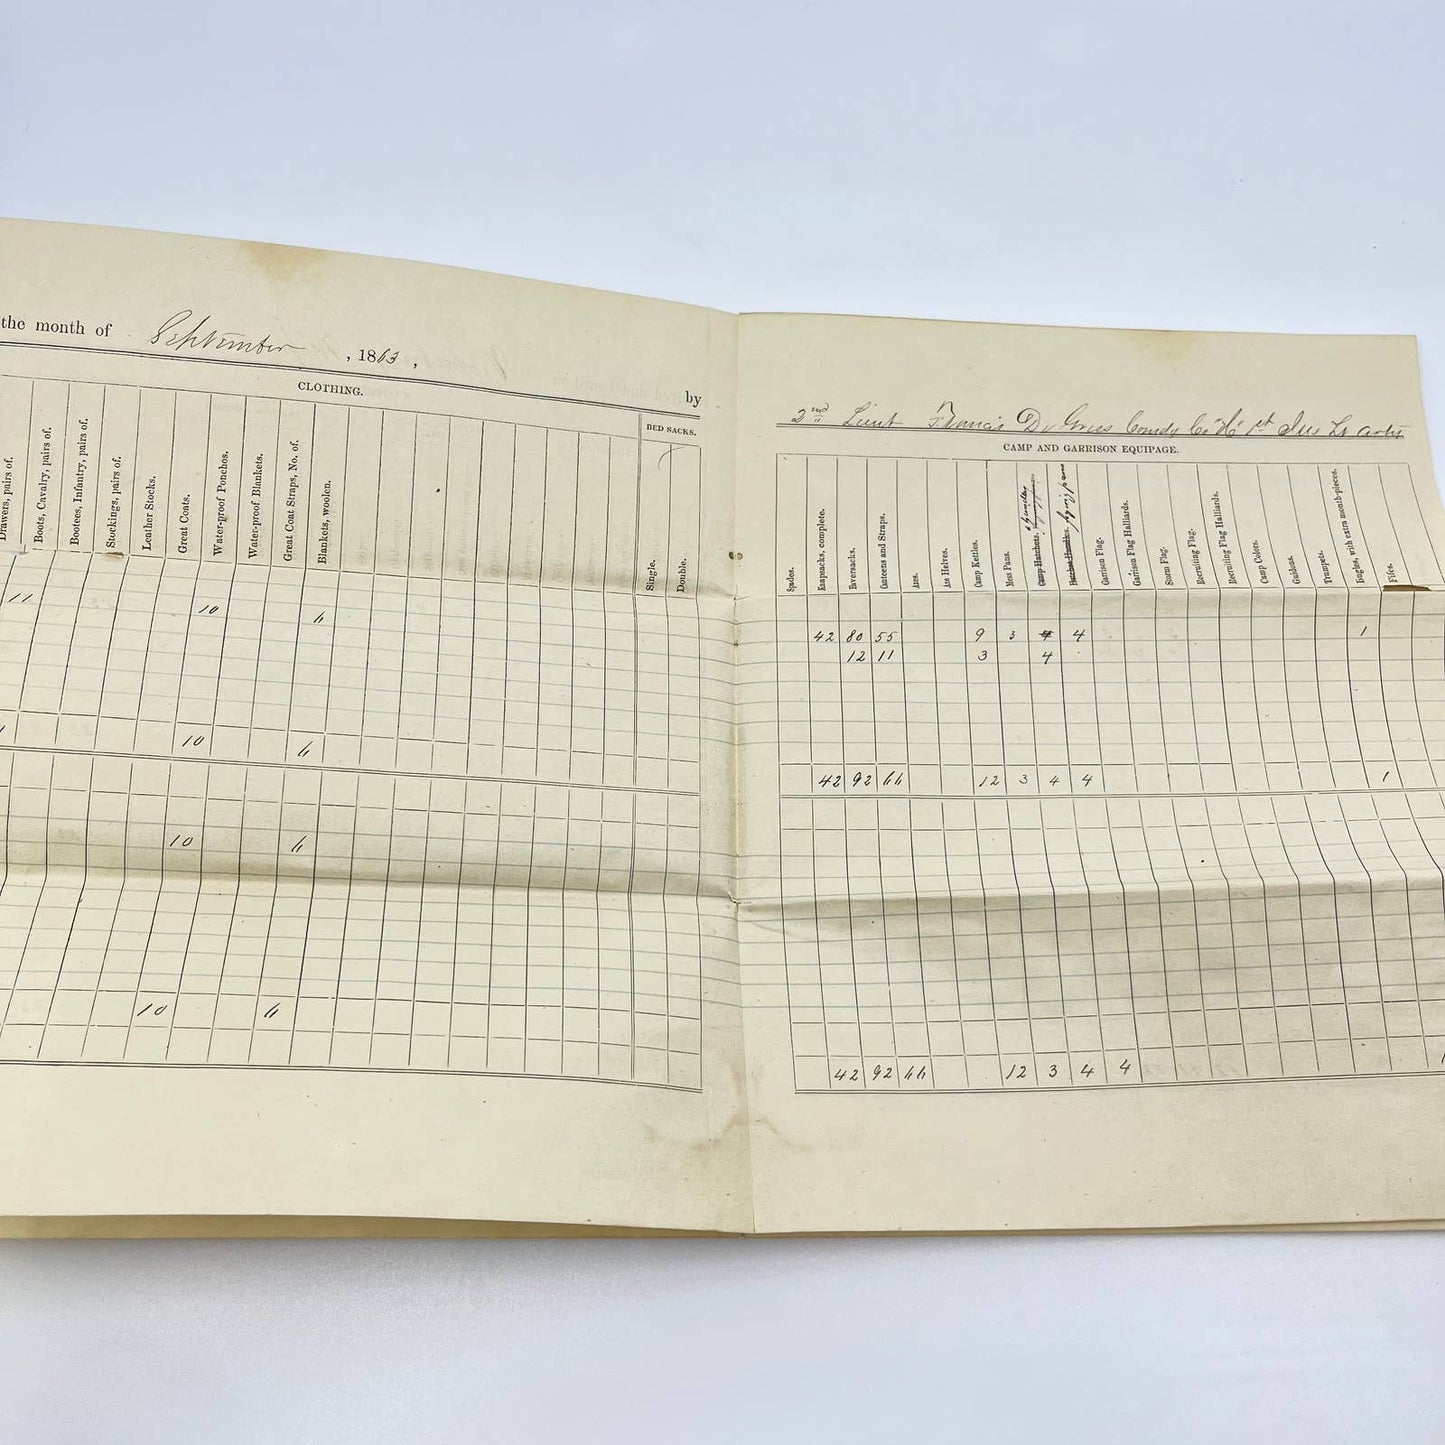 the month of September, 1863,
by
CLOTHING.
BED SACKS.
Drawers, pairs of.
Boots, Cavalry, pairs of.
Bootees, Infantry, pairs of.
Stockings, pairs of.
Leather Stocks.
Great Coats.
Water-proof Ponchos.
Water-proof Blankets.
Great Coat Straps, No. of.
Blankets, woolen.
Single.
Double.
11 10 11
10 11
10 11
10 11
2nd Lieut Francis D. Comdg Co "H" 1st Lt Arty
CAMP AND GARRISON EQUIPAGE.
Spades.
Knapsacks, complete.
Haversacks.
Canteens and Straps.
Axes.
Axe Helves.
Camp Kettles.
Mess Pans.
Camp Hatchets.
Hatchet Handles.
Garrison Flag.
Garrison Flag Halliards.
Storm Flag.
Recruiting Flag.
Recruiting Flag Halliards.
Camp Colors.
Guidons.
Trumpets.
Bugles, with extra mouth-pieces.
Fifes.
42 80 55 9 3 4 4 1
12 11 3 4
42 92 66 12 3 4 4 1
42 92 66 12 3 4 4